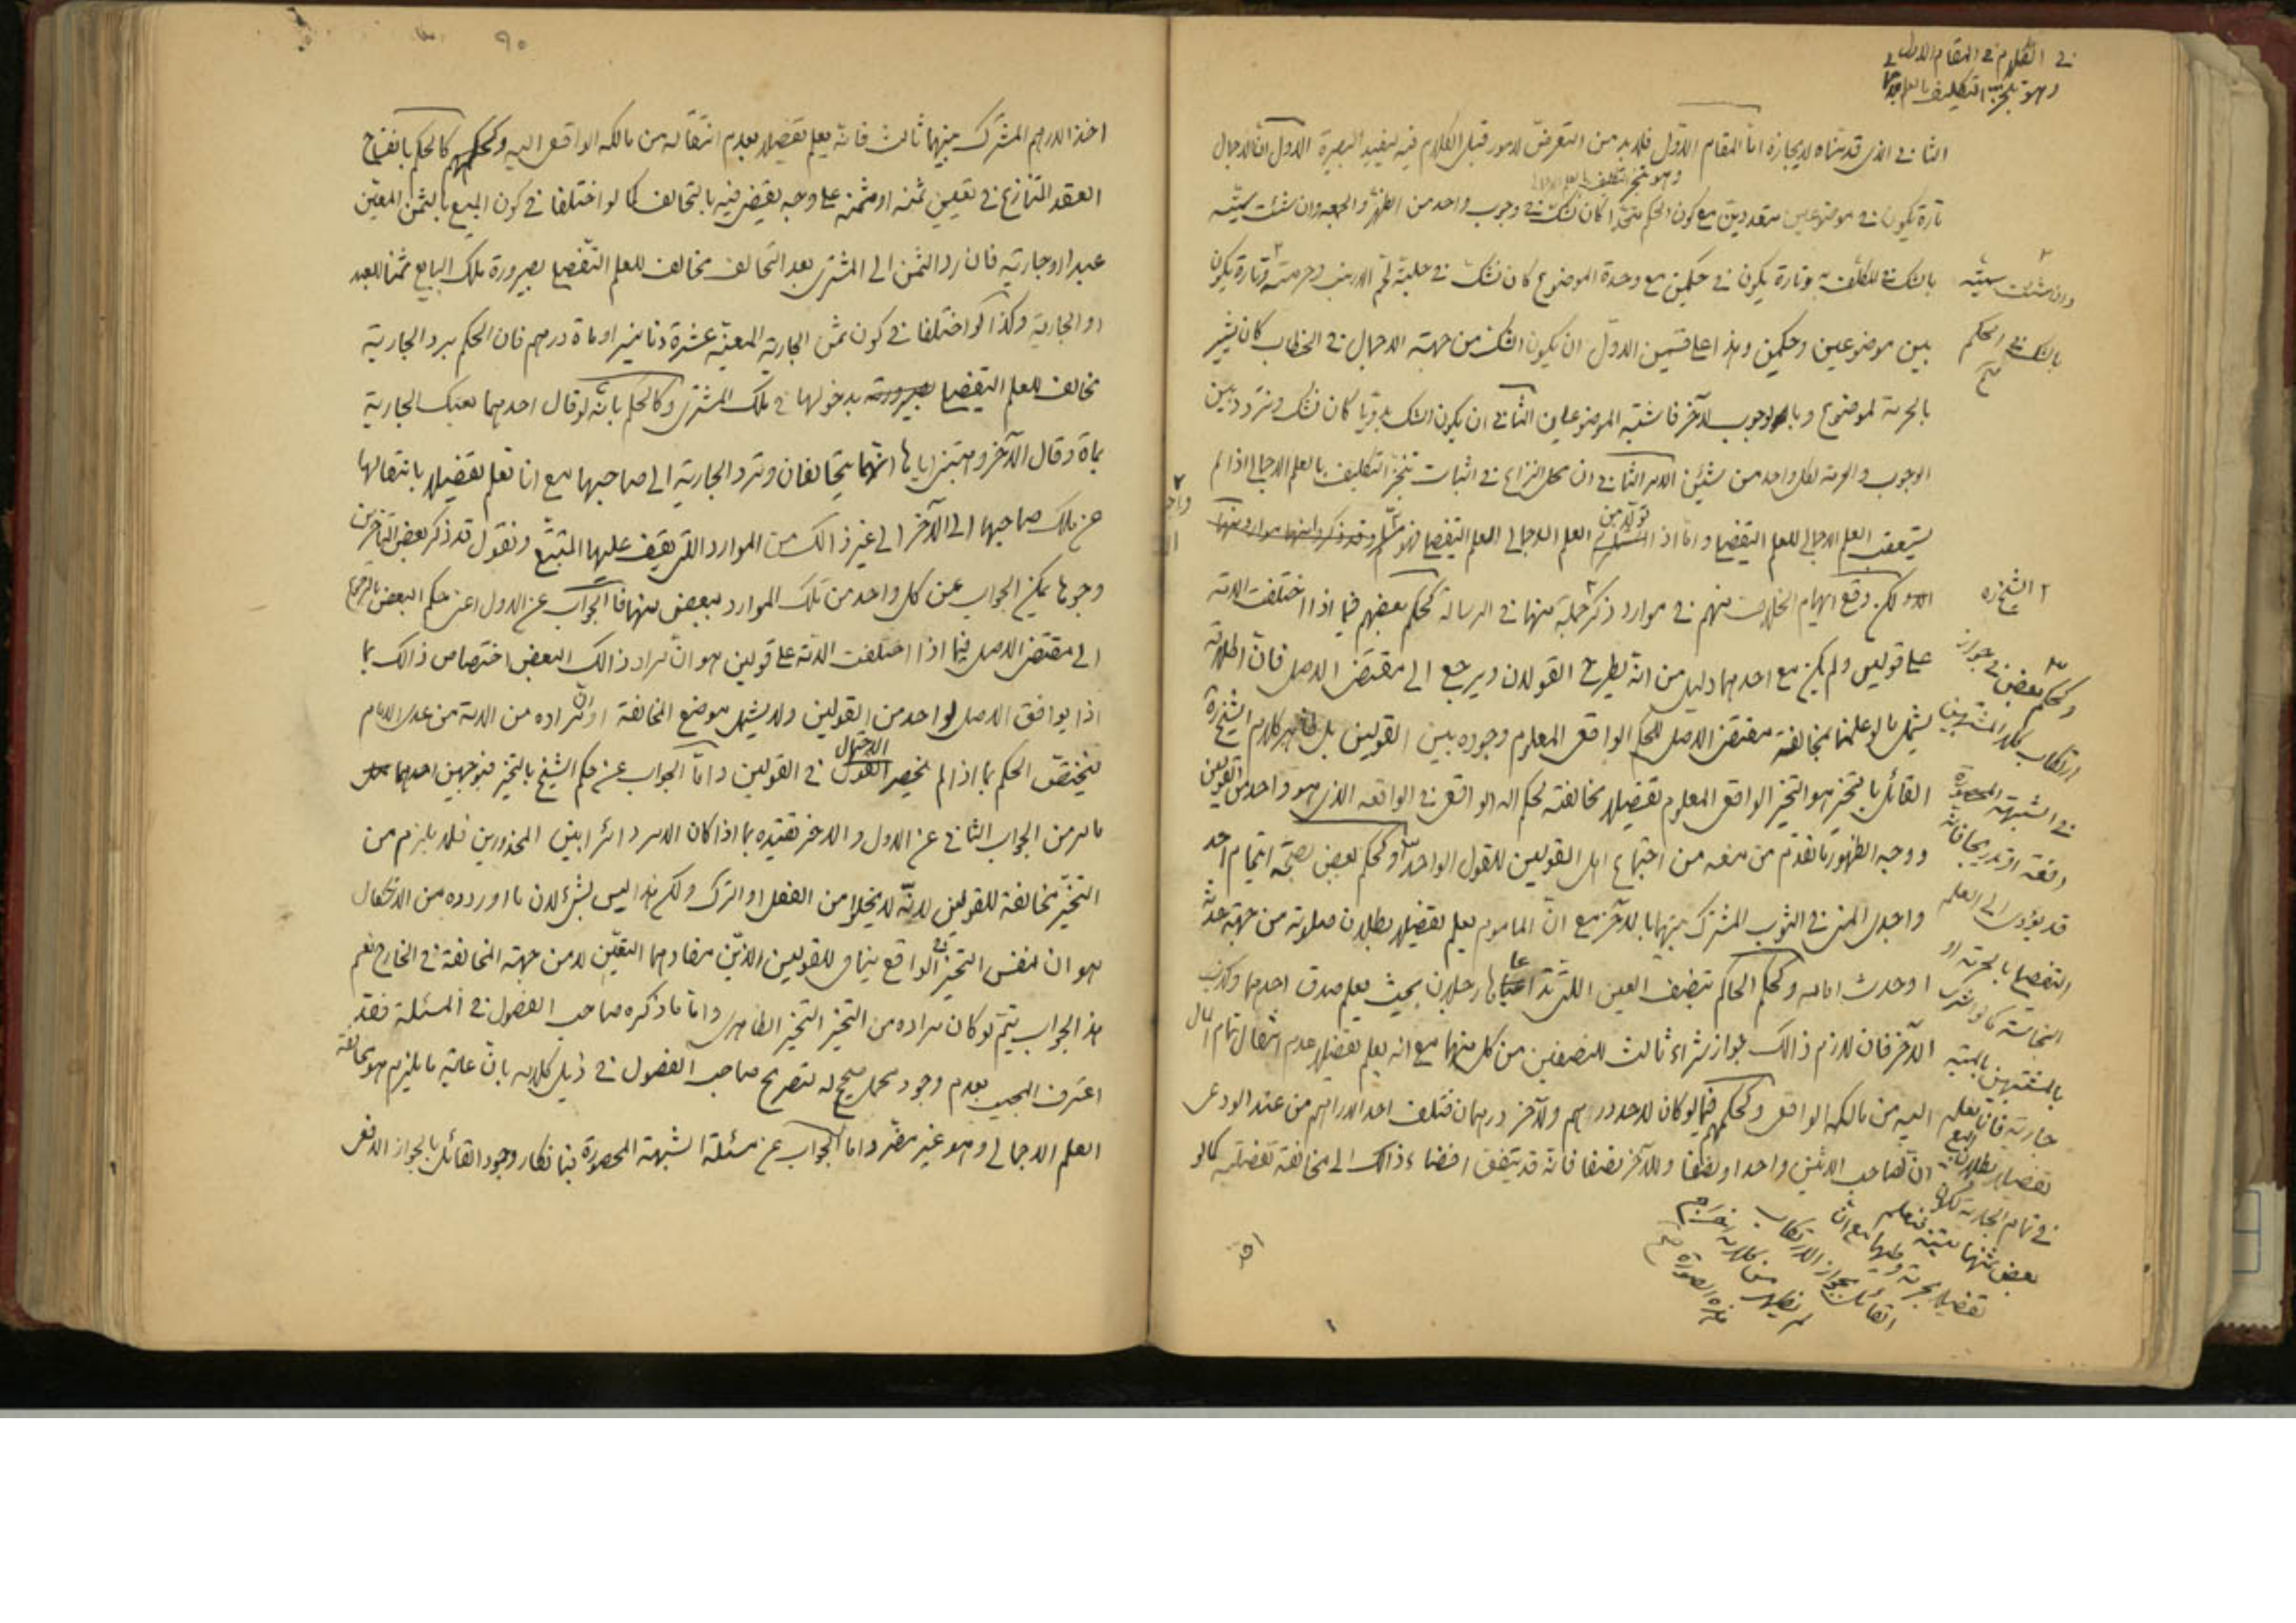 في الكلام في المقام الاول
وهو تنجز التكليف بالعلم
الثاني الذي قدمناه لايجازه اما المقام الاول فلابد من التعرض لامور قبل الكلام فيه ليفيد البصيرة الاول ان الاجمال
وهو تنجز التكليف بالعلم الاجمالي
تارة يكون في موضوعين متعددين مع كون الحكم متحدا كان نشك في وجوب واحد من الظهر والجمعة وان شئت سميته
بالشك في المكلف به وتارة يكون في حكمين مع وحدة الموضوع كان نشك في حلية لحم الارنب وحرمته وتارة يكون
بين موضوعين وحكمين وهذا على قسمين الاول ان يكون الشك من جهة الاجمال في الخطاب كان يشير
بالحرمة لموضوع وبالوجوب لاخر فاشتبه الموضوعان الثاني ان يكون الشك بدويا كان نشك ونتردد بين
الوجوب والحرمة لكل واحد من شيئين الامر الثاني ان محل النزاع في اثبات تنجز التكليف بالعلم الاجمالي اذا لم
يستعقب العلم الاجمالي للعلم التفصيلي واما اذا تولد من العلم الاجمالي العلم التفصيلي فهو مسلم
لكن وقع ايهام الخلاف منهم في موارد ذكر جملة منها في الرسالة كحكم بعضهم فيما اذا اختلفت الامة
على قولين ولم يكن مع احدهما دليل من انه يطرح القولان ويرجع الى مقتضى الاصل فان اطلاقه
يشمل ما لو علمنا بمخالفة مقتضى الاصل للحكم الواقعي المعلوم وجوده بين القولين بل ظاهر كلام الشيخ ره
القائل بالتخيير هو التخيير الواقعي المعلوم تفصيلا مخالفته لحكم الله الواقعي في الواقعة الذي هو واحد من القولين
ووجه الظهور ما تقدم من منعه من اجتماع اهل القولين للقول الواحد وكحكم بعض بصحة ايتمام احد
واجدي المني في الثوب المشترك بينهما بالاخر مع ان الماموم يعلم تفصيلا ببطلان صلوته من جهة حدثه
او حدث امامه وكحكم الحاكم بتنصيف العين التي تداعاها رجلان بحيث يعلم صدق احدهما وكذب
الاخر فان لازم ذالك جواز شراء ثالث للنصفين من كل منهما مع انه يعلم تفصيلا عدم انتقال تمام المال
اليه من مالكه الواقعي وكحكمهم فيما لو كان لاحد درهم ولآخر درهمان فتلف احد الدراهم من عند الودعي
ان لصاحب الاثنين واحدا ونصفا وللآخر نصفا فانه قد يتفق افضاء ذالك الى مخالفة تفصيلية كما لو
وان شئت سميته
بالشك في الحكم
صح
الشيخ ره
وكحكم بعض في جواز
ارتكاب كلا المشتبهين
في الشبهة المحصورة
دفعة او تدريجا فانه
قد يؤدي الى العلم
التفصيلي بالحرمة او
النجاسة كما لو اشترى
بالمشتبهين بالميتة
جارية فانا نعلم
تفصيلا ببطلان البيع
في تمام الجارية لكون
بعض ثمنها ميتة فنعلم
تفصيلا بحرمة وطيها مع ان
القائل بجواز الارتكاب
لم يظهر من كلامه
هذه الصورة صح
٩٠
اخذ الدرهم المشترك بينهما ثالث فانه يعلم تفصيلا بعدم انتقاله من مالكه الواقعي اليه وكحكمهم كالحكم بانفساخ
العقد المتنازع في تعيين ثمنه او مثمنه على وجه يقضى فيه بالتحالف كما لو اختلفا في كون المبيع بالثمن المعين
عبدا او جارية فان رد الثمن الى المشتري بعد التحالف مخالف للعلم التفصيلي بصيرورة ملك البايع ثمنا للعبد
او الجارية وكذا لو اختلفا في كون ثمن الجارية المعينة عشرة دنانير او ماة درهم فان الحكم برد الجارية
مخالف للعلم التفصيلي بدخولها في ملك المشتري وكالحكم بانه لو قال احدهما بعتك الجارية
بماة وقال الآخر وهبتني اياها انهما يتحالفان وترد الجارية الى صاحبها مع انا نعلم تفصيلا بانتقالها
عن ملك صاحبها الى الآخر الى غير ذالك من الموارد التي يقف عليها المتتبع ونقول قد ذكر بعض المتأخرين
وجوها يمكن الجواب عن كل واحد من تلك الموارد ببعض منها فالجواب عن الاول اعني حكم البعض بالرجوع
الى مقتضى الاصل فيما اذا اختلفت الامة على قولين هو ان مراد ذالك البعض اختصاص ذالك بما
اذا يوافق الاصل لواحد من القولين ولا يشمل موضع المخالفة او ان مراده من الامة من عدى الامام
فيختص الحكم بما اذا لم ينحصر الاحتمال في القولين واما الجواب عن حكم الشيخ بالتخيير فبوجهين احدهما
ما مر من الجواب الثاني عن الاول والاخر تقييده بما اذا كان الامر دائرا بين المحذورين فلا يلزم من
التخيير مخالفة للقولين لانه لا يخلوا من الفعل او الترك ولكن هذا ليس بشئ لان ما اورده من الاشكال
هو ان نفس التخيير الواقعي ينافي للقولين الذين مفادهما التعيين لا من جهة المخالفة في الخارج نعم
هذا الجواب يتم لو كان مراده من التخيير التخيير الظاهري واما ما ذكره صاحب الفصول في المسئلة فقد
اعترف المجيب بعدم وجود محمل صحيح له لتصريح صاحب الفصول في ذيل كلامه بان غاية ما يلزم هو مخالفة
العلم الاجمالي وهو غير مضر واما الجواب عن مسئلة الشبهة المحصورة فبانكار وجود القائل بالجواز الدفعي